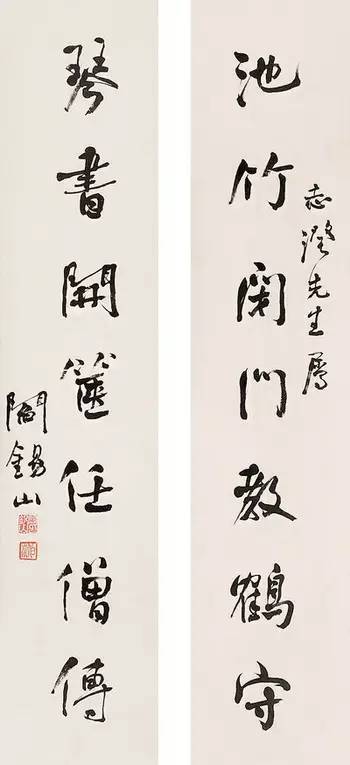 志澄先生属
池竹閉門教鶴守
琴書開篋任僧傳
閻錫山